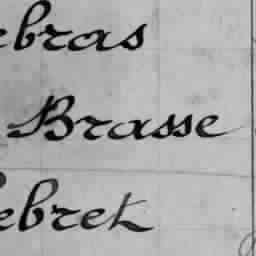 ebras
Brasse
ebret